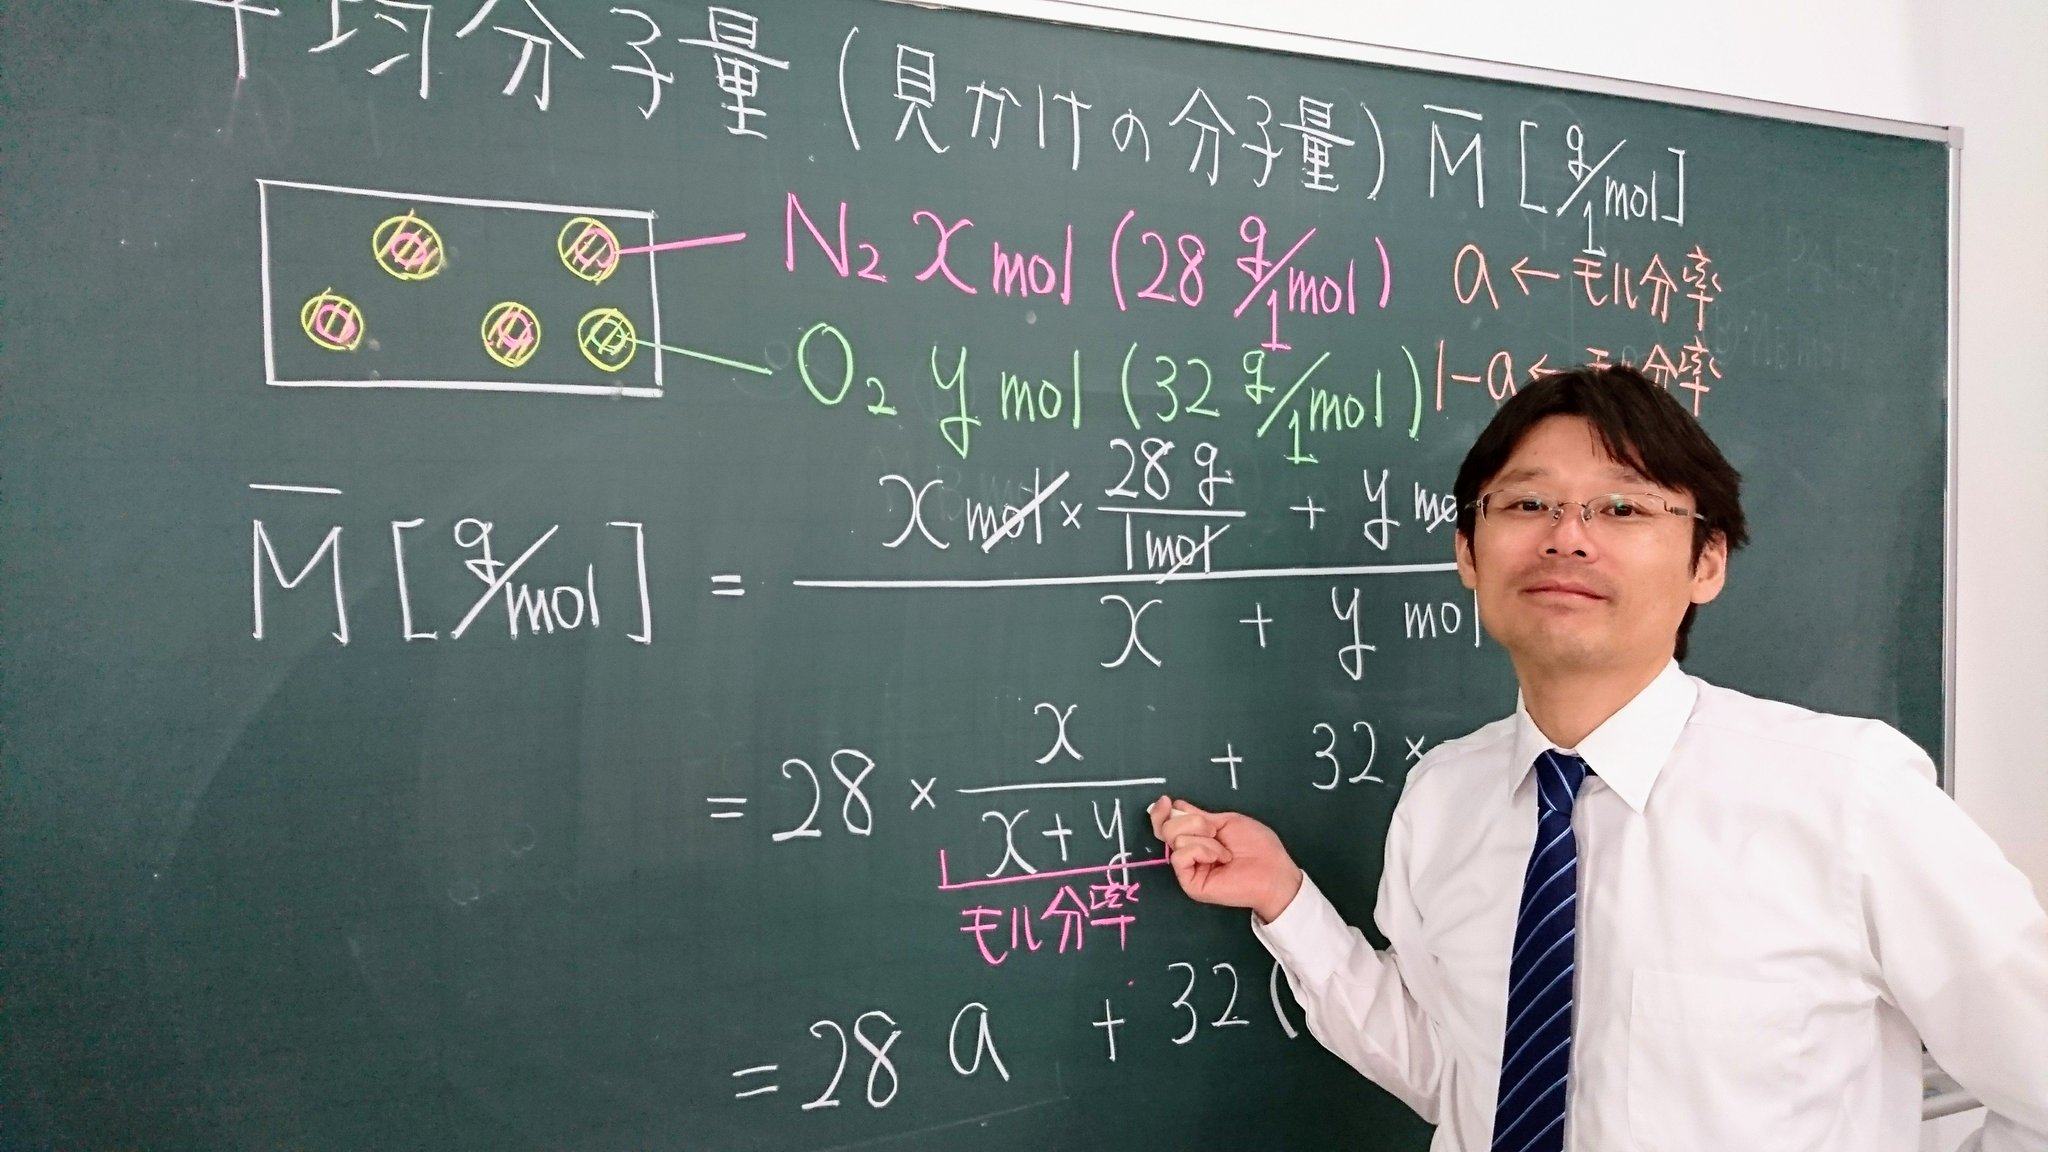 平均分子量(見かけの分子量) M̄ [g/1mol]
N₂ x mol (28 g/1mol) a ← モル分率
O₂ y mol (32 g/1mol) 1-a ← モル分率
x mol × 28 g / 1mol + y mo
M̄ [g/mol] = ―
x + y mol
= 28 × x / x+y + 32 ×
モル分率
= 28 a + 32 (